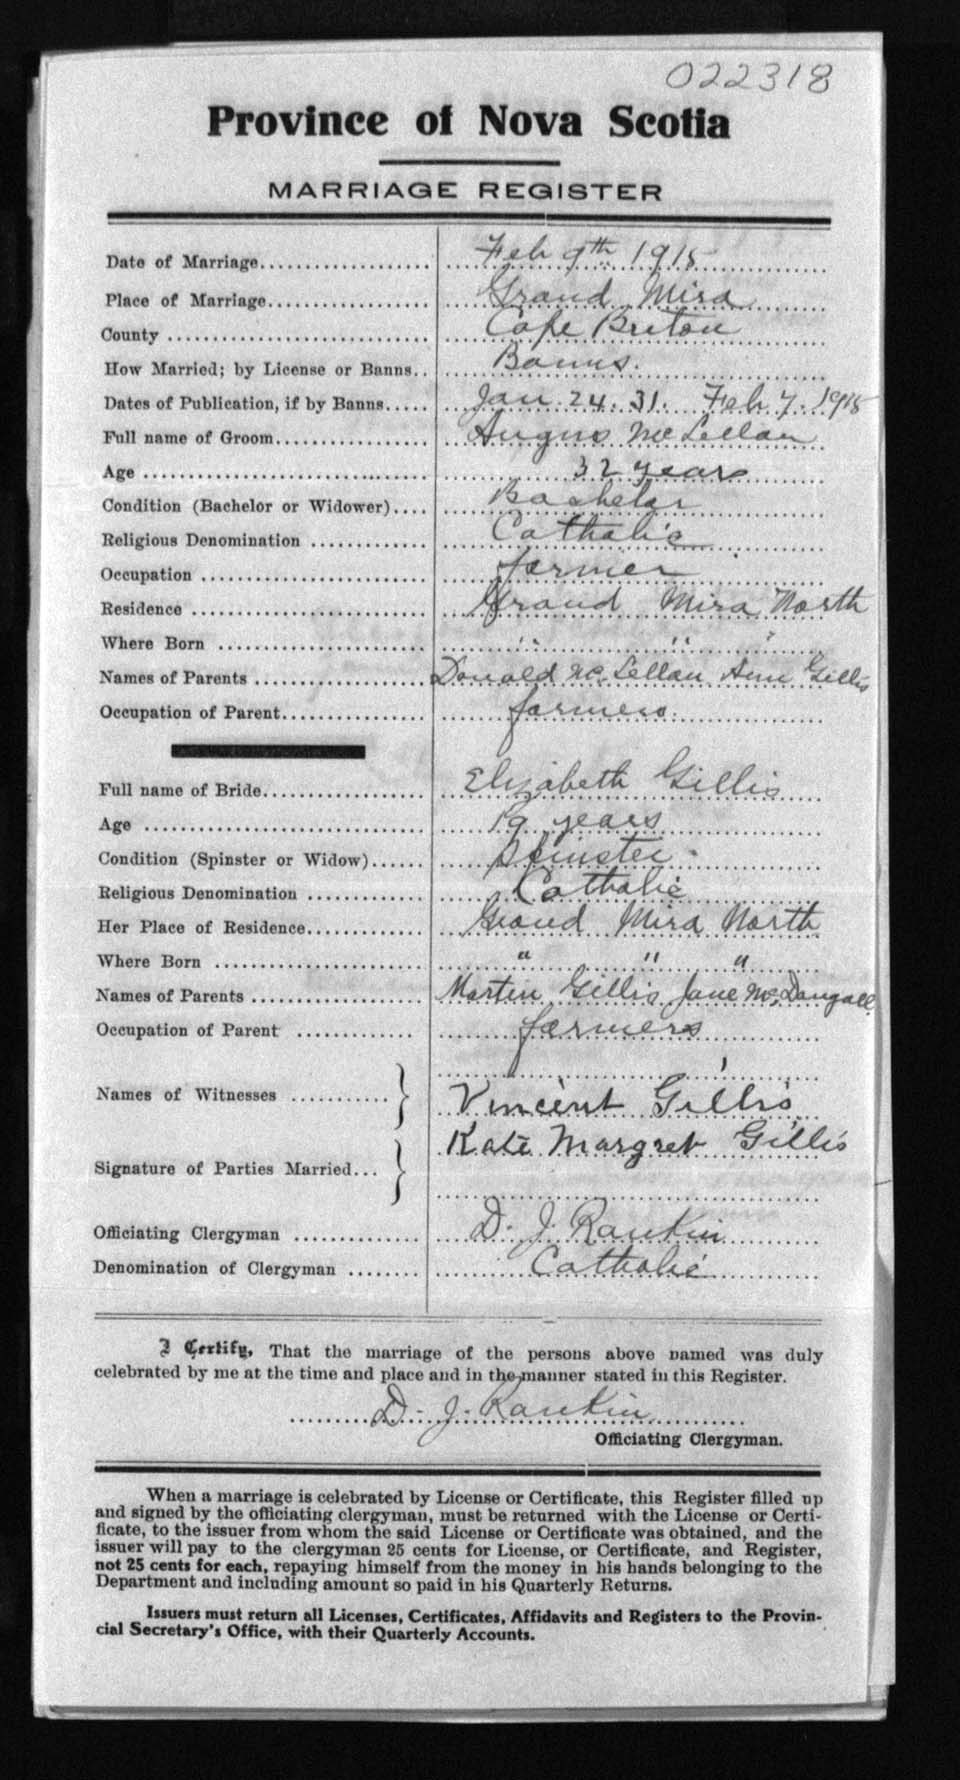 022318
Province of Nova Scotia
MARRIAGE REGISTER
Date of Marriage.................. Feb 9th 1915
Place of Marriage................. Grand Mira
County ........................... Cape Briton
How Married; by License or Banns.. Banns.
Dates of Publication, if by Banns..... Jan 24. 31. Feb 7. 1915
Full name of Groom................ Angus McLellan
Age .............................. 32 years
Condition (Bachelor or Widower).... Bachelor
Religious Denomination ............ Catholic
Occupation ....................... farmer
Residence ........................ Grand Mira North
Where Born ....................... " " "
Names of Parents .................. Donald McLellan Ann Gillis
Occupation of Parent............... farmers.
Full name of Bride................. Elizabeth Gillis
Age .............................. 19 years
Condition (Spinster or Widow)...... Spinster.
Religious Denomination ............ Catholic
Her Place of Residence............. Grand Mira North
Where Born ....................... " " "
Names of Parents .................. Marten Gillis Jane McDougall
Occupation of Parent ............. farmers
Names of Witnesses ........... } Vincent Gillis
Kate Margret Gillis
Signature of Parties Married... }
Officiating Clergyman ............. D. J. Rankin
Denomination of Clergyman ........ Catholic
I Certify, That the marriage of the persons above named was duly
celebrated by me at the time and place and in the manner stated in this Register.
D. J. Rankin
Officiating Clergyman.
When a marriage is celebrated by License or Certificate, this Register filled up
and signed by the officiating clergyman, must be returned with the License or Certi-
ficate, to the issuer from whom the said License or Certificate was obtained, and the
issuer will pay to the clergyman 25 cents for License, or Certificate, and Register,
not 25 cents for each, repaying himself from the money in his hands belonging to the
Department and including amount so paid in his Quarterly Returns.
Issuers must return all Licenses, Certificates, Affidavits and Registers to the Provin-
cial Secretary's Office, with their Quarterly Accounts.